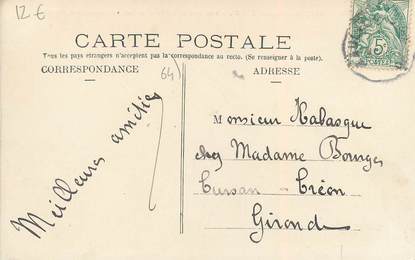 12 €
CARTE POSTALE
Tous les pays étrangers n'acceptent pas la correspondance au recto. (Se renseigner à la poste).
CORRESPONDANCE
64
ADRESSE
Meilleures amitiés
Monsieur Kalasque
chez Madame Bourges
Cursan - Créon
Gironde
5c